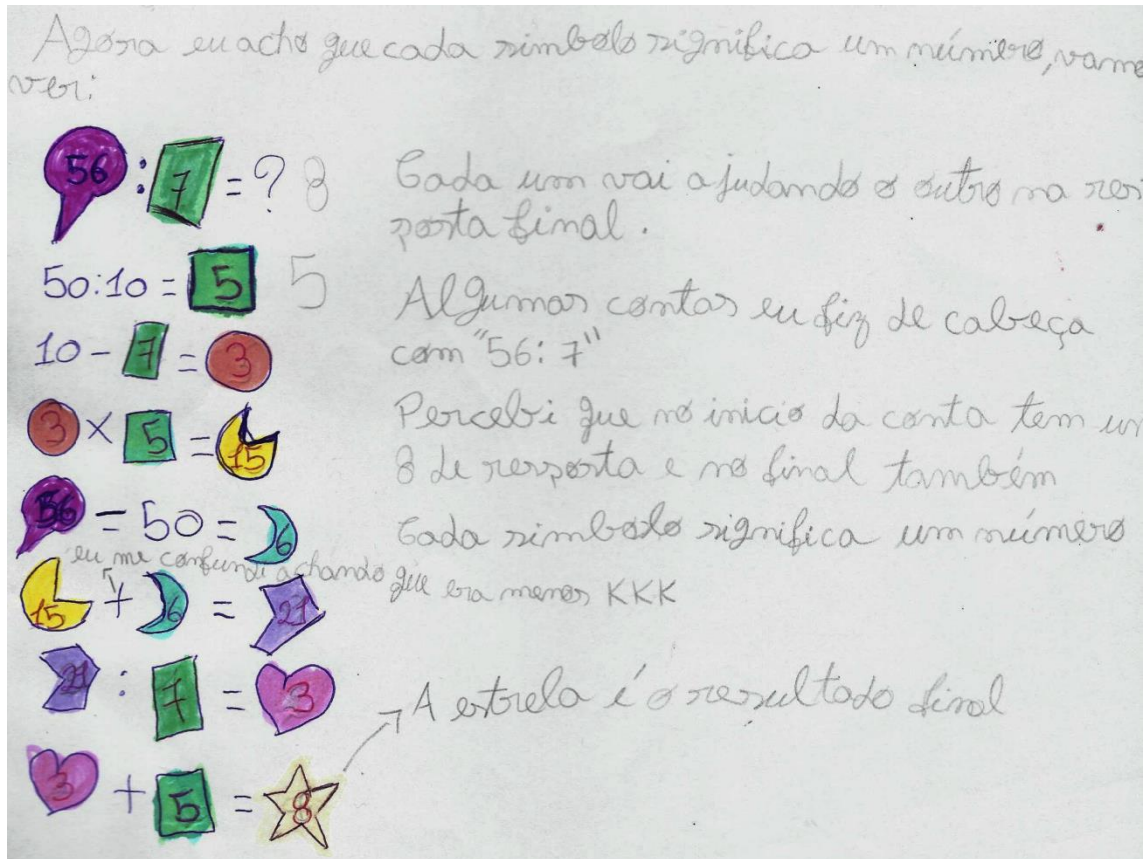 Agora eu acho que cada simbolo significa um número, vamo
ver:
56 : 7 = ? 8
50:10 = 5 5
10 - 7 = 3
3 × 5 = 15
56 - 50 = 6
eu me confundi achando que era menos KKK
15 + 6 = 21
21 : 7 = 3
3 + 5 = 8
Cada um vai ajudando o outro na res
posta final.
Algumas contas eu fiz de cabeça
com "56:7"
Percebi que no inicio da conta tem um
8 de resposta e no final também
Cada simbolo significa um número
A estrela é o resultado final